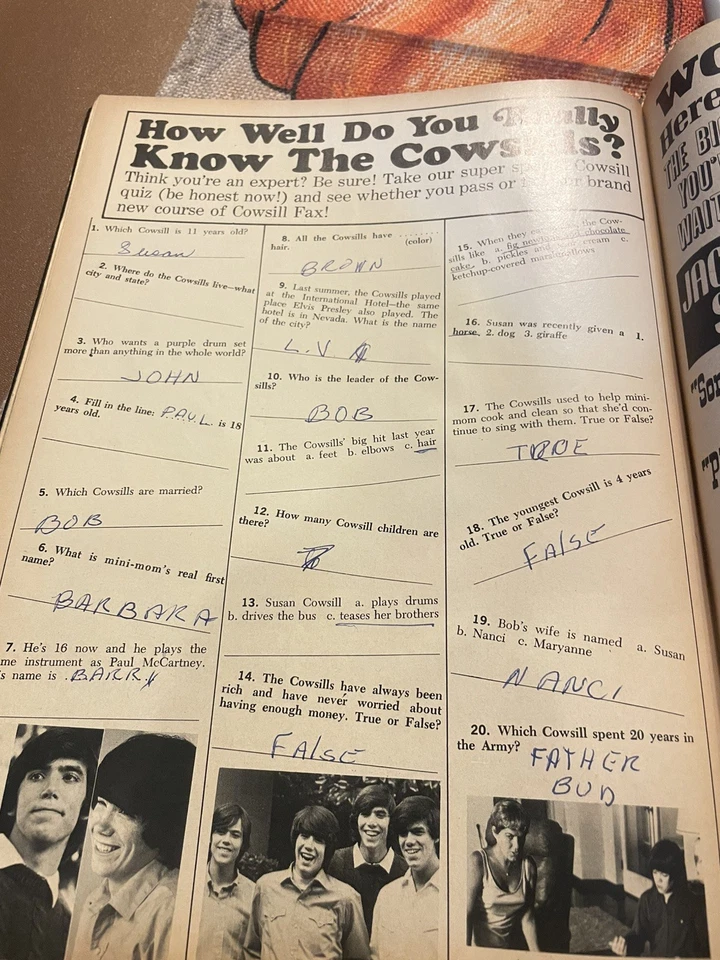 How Well Do You
Know The Cows s?
Think you're an expert? Be sure! Take our super Cowsill
quiz (be honest now!) and see whether you pass or brand
new course of Cowsill Fax!
1. Which Cowsill is 11 years old?
Susan
2. Where do the Cowsills live—what
city and state?
3. Who wants a purple drum set
more than anything in the whole world?
JOHN
4. Fill in the line: PAUL is 18
years old.
5. Which Cowsills are married?
BOB
6. What is mini-mom's real first
name?
BARBARA
7. He's 16 now and he plays the
me instrument as Paul McCartney.
s name is BARRY
8. All the Cowsills have ........
hair. (color)
BROWN
9. Last summer, the Cowsills played
at the International Hotel—the same
place Elvis Presley also played. The
hotel is in Nevada. What is the name
of the city?
L.V
10. Who is the leader of the Cow-
sills?
BOB
11. The Cowsills' big hit last year
was about a. feet b. elbows c. hair
12. How many Cowsill children are
there?
13. Susan Cowsill a. plays drums
b. drives the bus c. teases her brothers
14. The Cowsills have always been
rich and have never worried about
having enough money. True or False?
FAlSE
15. When they the Cow-
sills like a. fig chocolate
cake, b. pickles and cream c.
ketchup-covered marshmallows
16. Susan was recently given a 1.
horse, 2. dog 3. giraffe
17. The Cowsills used to help mini-
mom cook and clean so that she'd con-
tinue to sing with them. True or False?
TRUE
18. The youngest Cowsill is 4 years
old. True or False?
FAlSE
19. Bob's wife is named a. Susan
b. Nanci c. Maryanne
NANCI
20. Which Cowsill spent 20 years in
the Army? FATHER
BUD
WO
Here
THE BI
YOU'
WAIT
JAC
"Son
"P